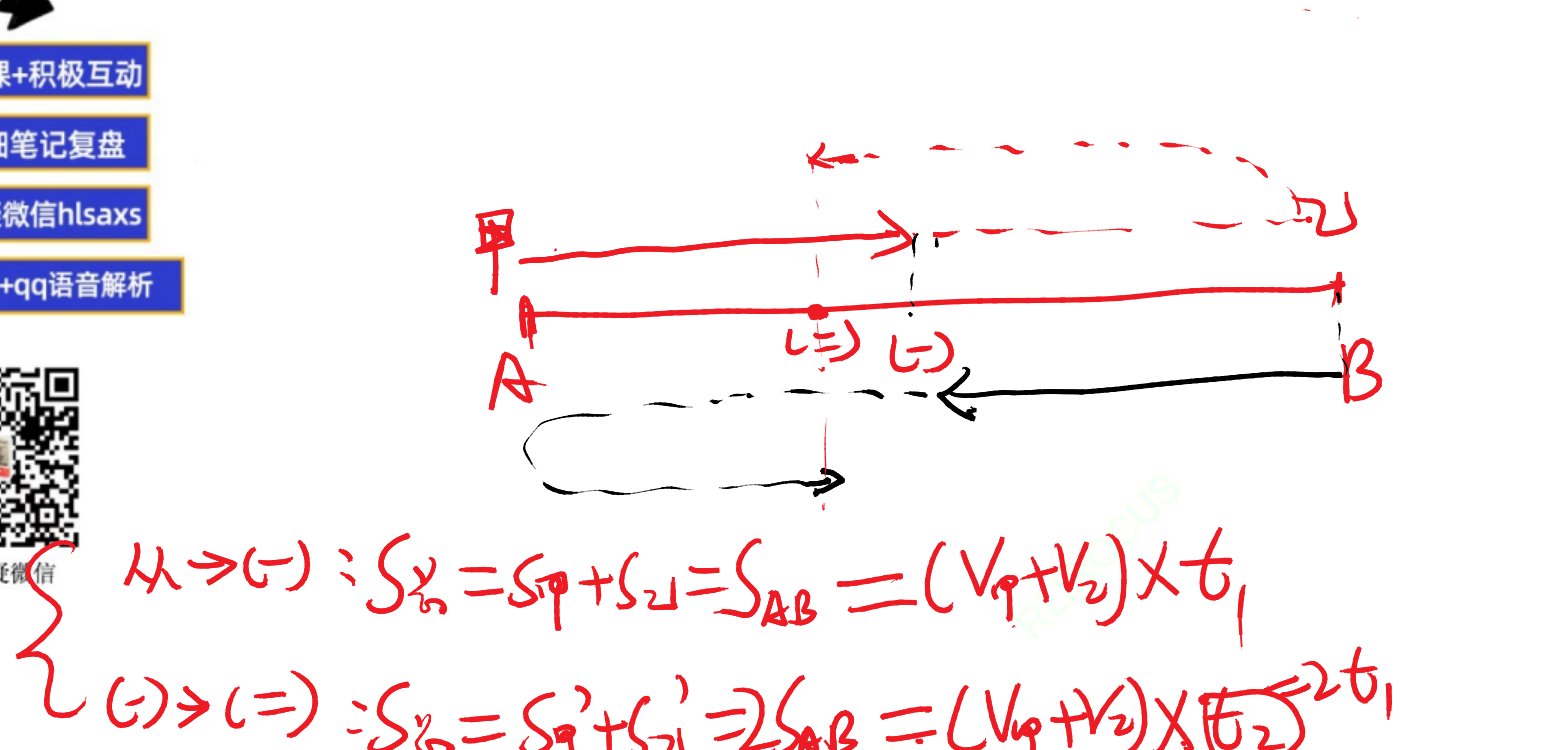 果+积极互动
田笔记复盘
微信hlsaxs
+qq语音解析
疑微信
甲
乙
A
(二)
(一)
B
从→(一):S总=S甲+S乙=S_AB=(V甲+V乙)×t₁
(一)→(二):S总=S甲'+S乙'=2S_AB=(V甲+V乙)×t₂=2t₁